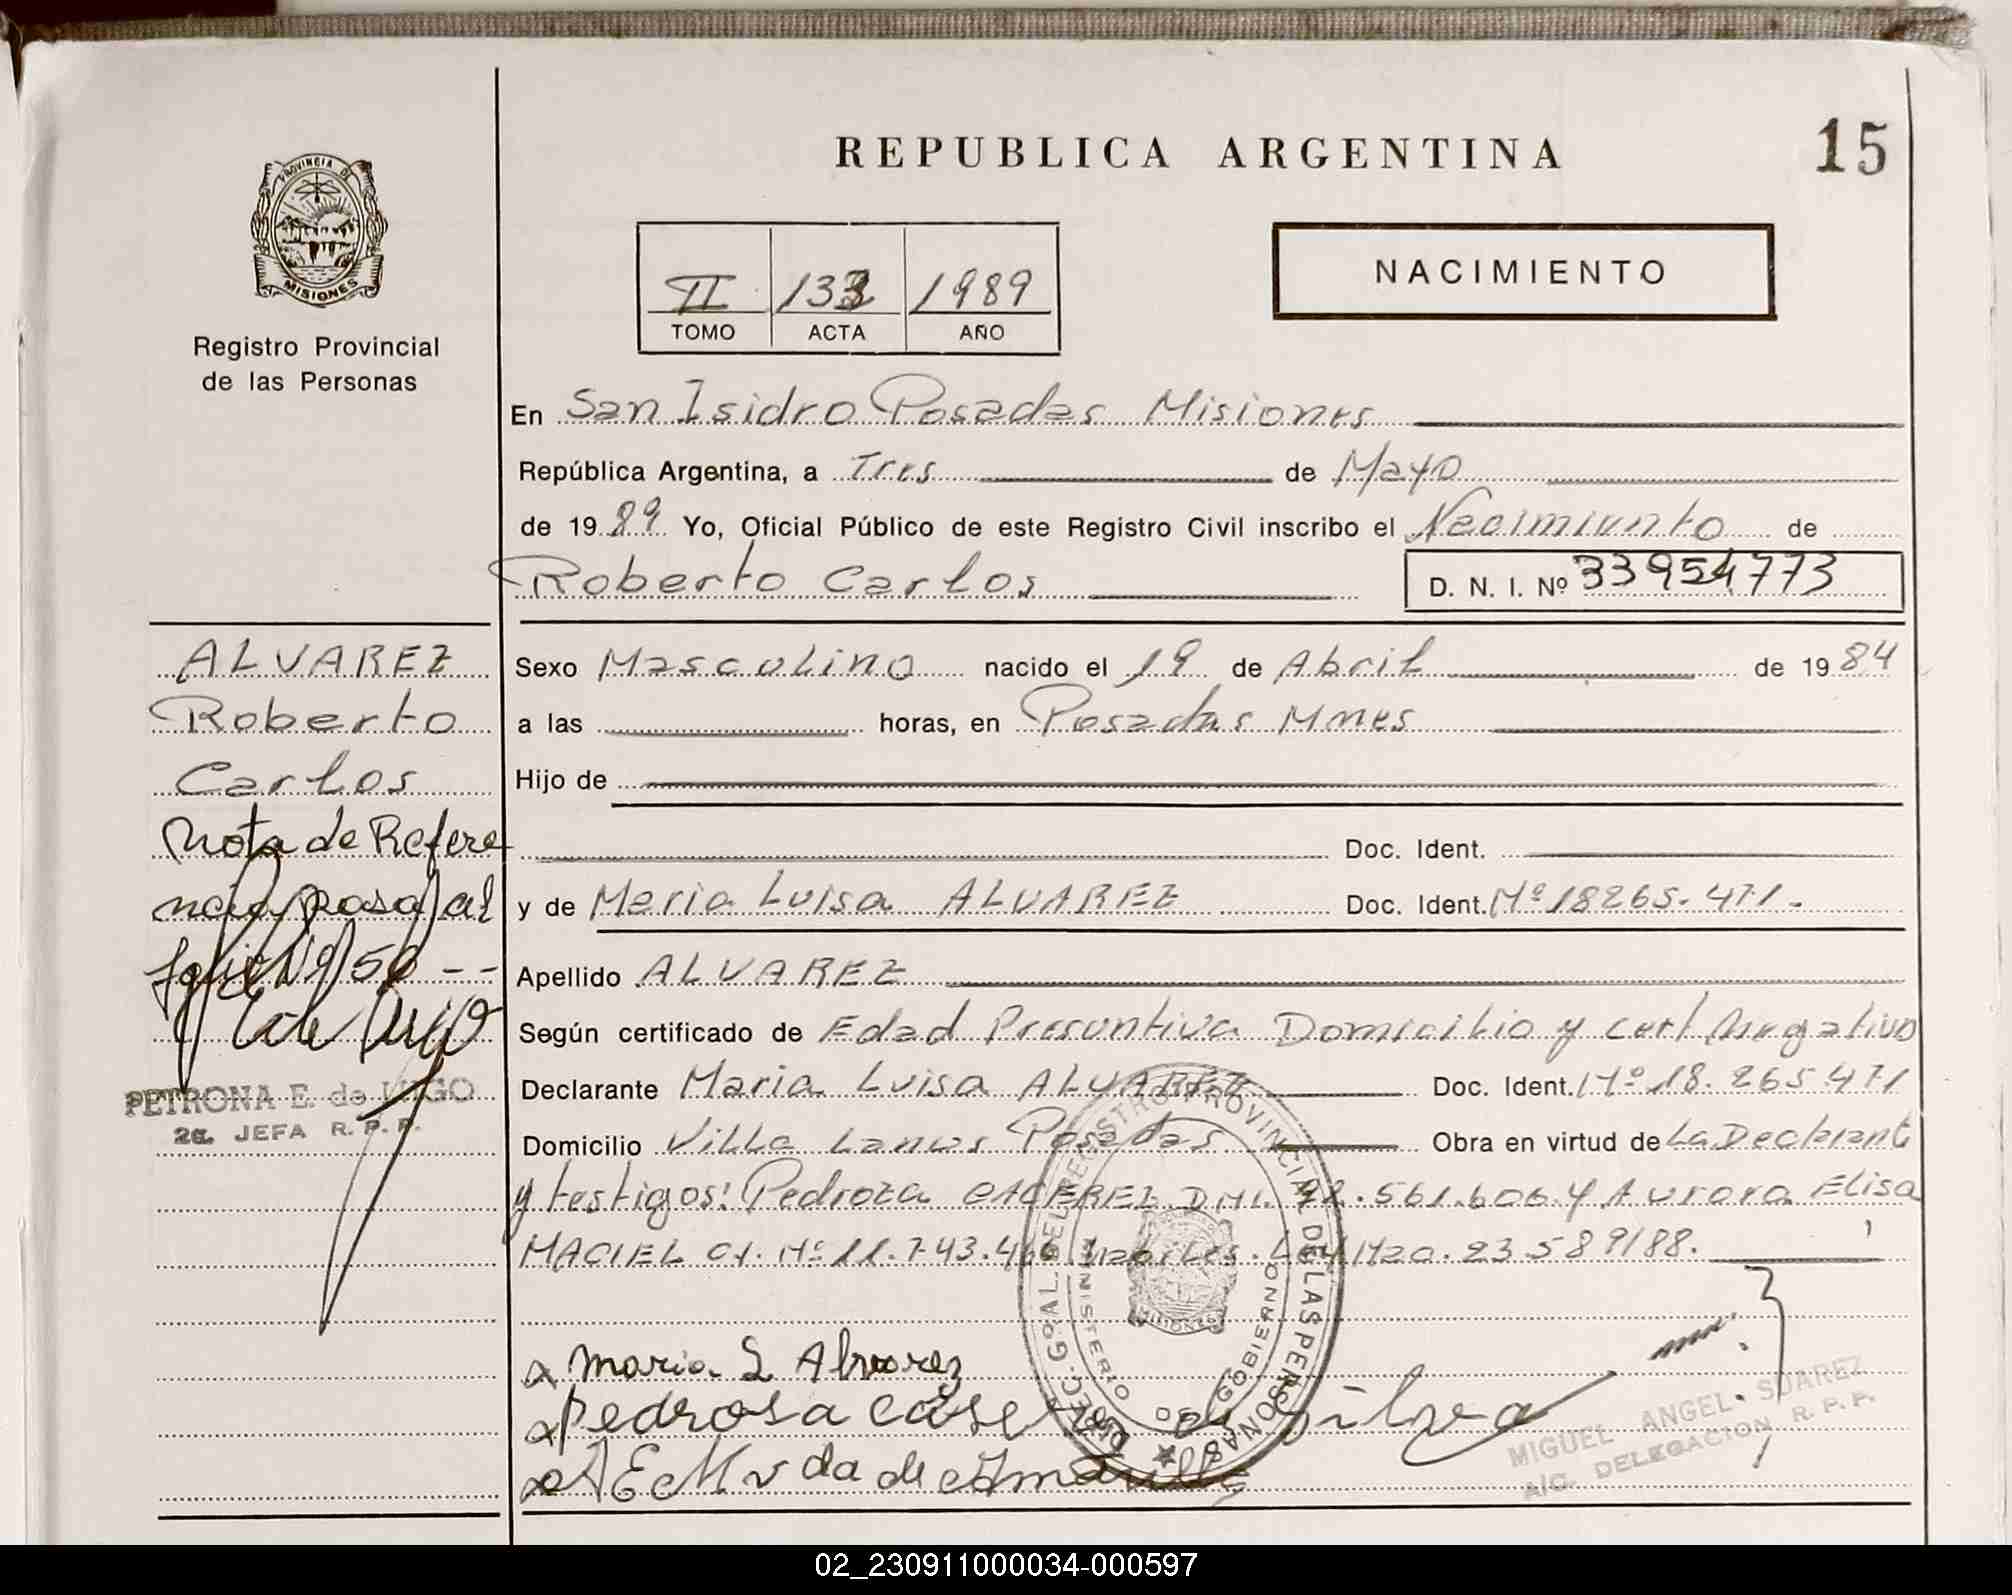 REPUBLICA ARGENTINA
15
PROVINCIA DE
MISIONES
Registro Provincial
de las Personas
II 1989
TOMO ACTA AÑO
NACIMIENTO
En San Isidro Posadas Misiones
República Argentina, a Tres de Mayo
de 1989 Yo, Oficial Público de este Registro Civil inscribo el Nacimiento de
Roberto Carlos D. N. I. Nº 33954773
ALVAREZ
Roberto
Carlos
Nota de Refere
ncia pasa al
folio Nº 50 --
PETRONA E. de LUGO
2a. JEFA R. P. P.
Sexo Masculino nacido el 19 de Abril de 1984
a las horas, en Posadas Mnes
Hijo de
Doc. Ident.
y de Maria Luisa ALVAREZ Doc. Ident. Nº 18265.471.
Apellido ALVAREZ
Según certificado de Edad Presuntiva Domicilio y cert Negativo
Declarante Maria Luisa ALVAREZ Doc. Ident. Nº 18.265.471
Domicilio Villa Lanus Posadas Obra en virtud de La Declarante
y testigos: Pedroza CACEREZ D.N.I. 92.561.606 y Aurora Elisa
MACIEL C.I. Nº 11.743. Ley Nro. 23.589/88.
x Maria L Alvarez
x Pedrosa Silva
x A E M vda de
DIREC. GRAL. DEL REGISTRO PROVINCIAL DE LAS PERSONAS
MINISTERIO DE GOBIERNO
MISIONES
MIGUEL ANGEL SUAREZ
A/C. DELEGACION R. P. P.
02_230911000034-000597